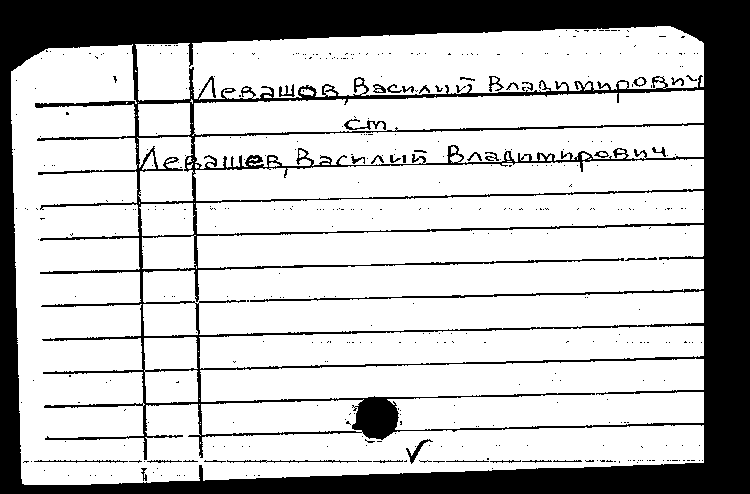 Левашов, Василий Владимирович
ст.
Левашев, Василий Владимирович.